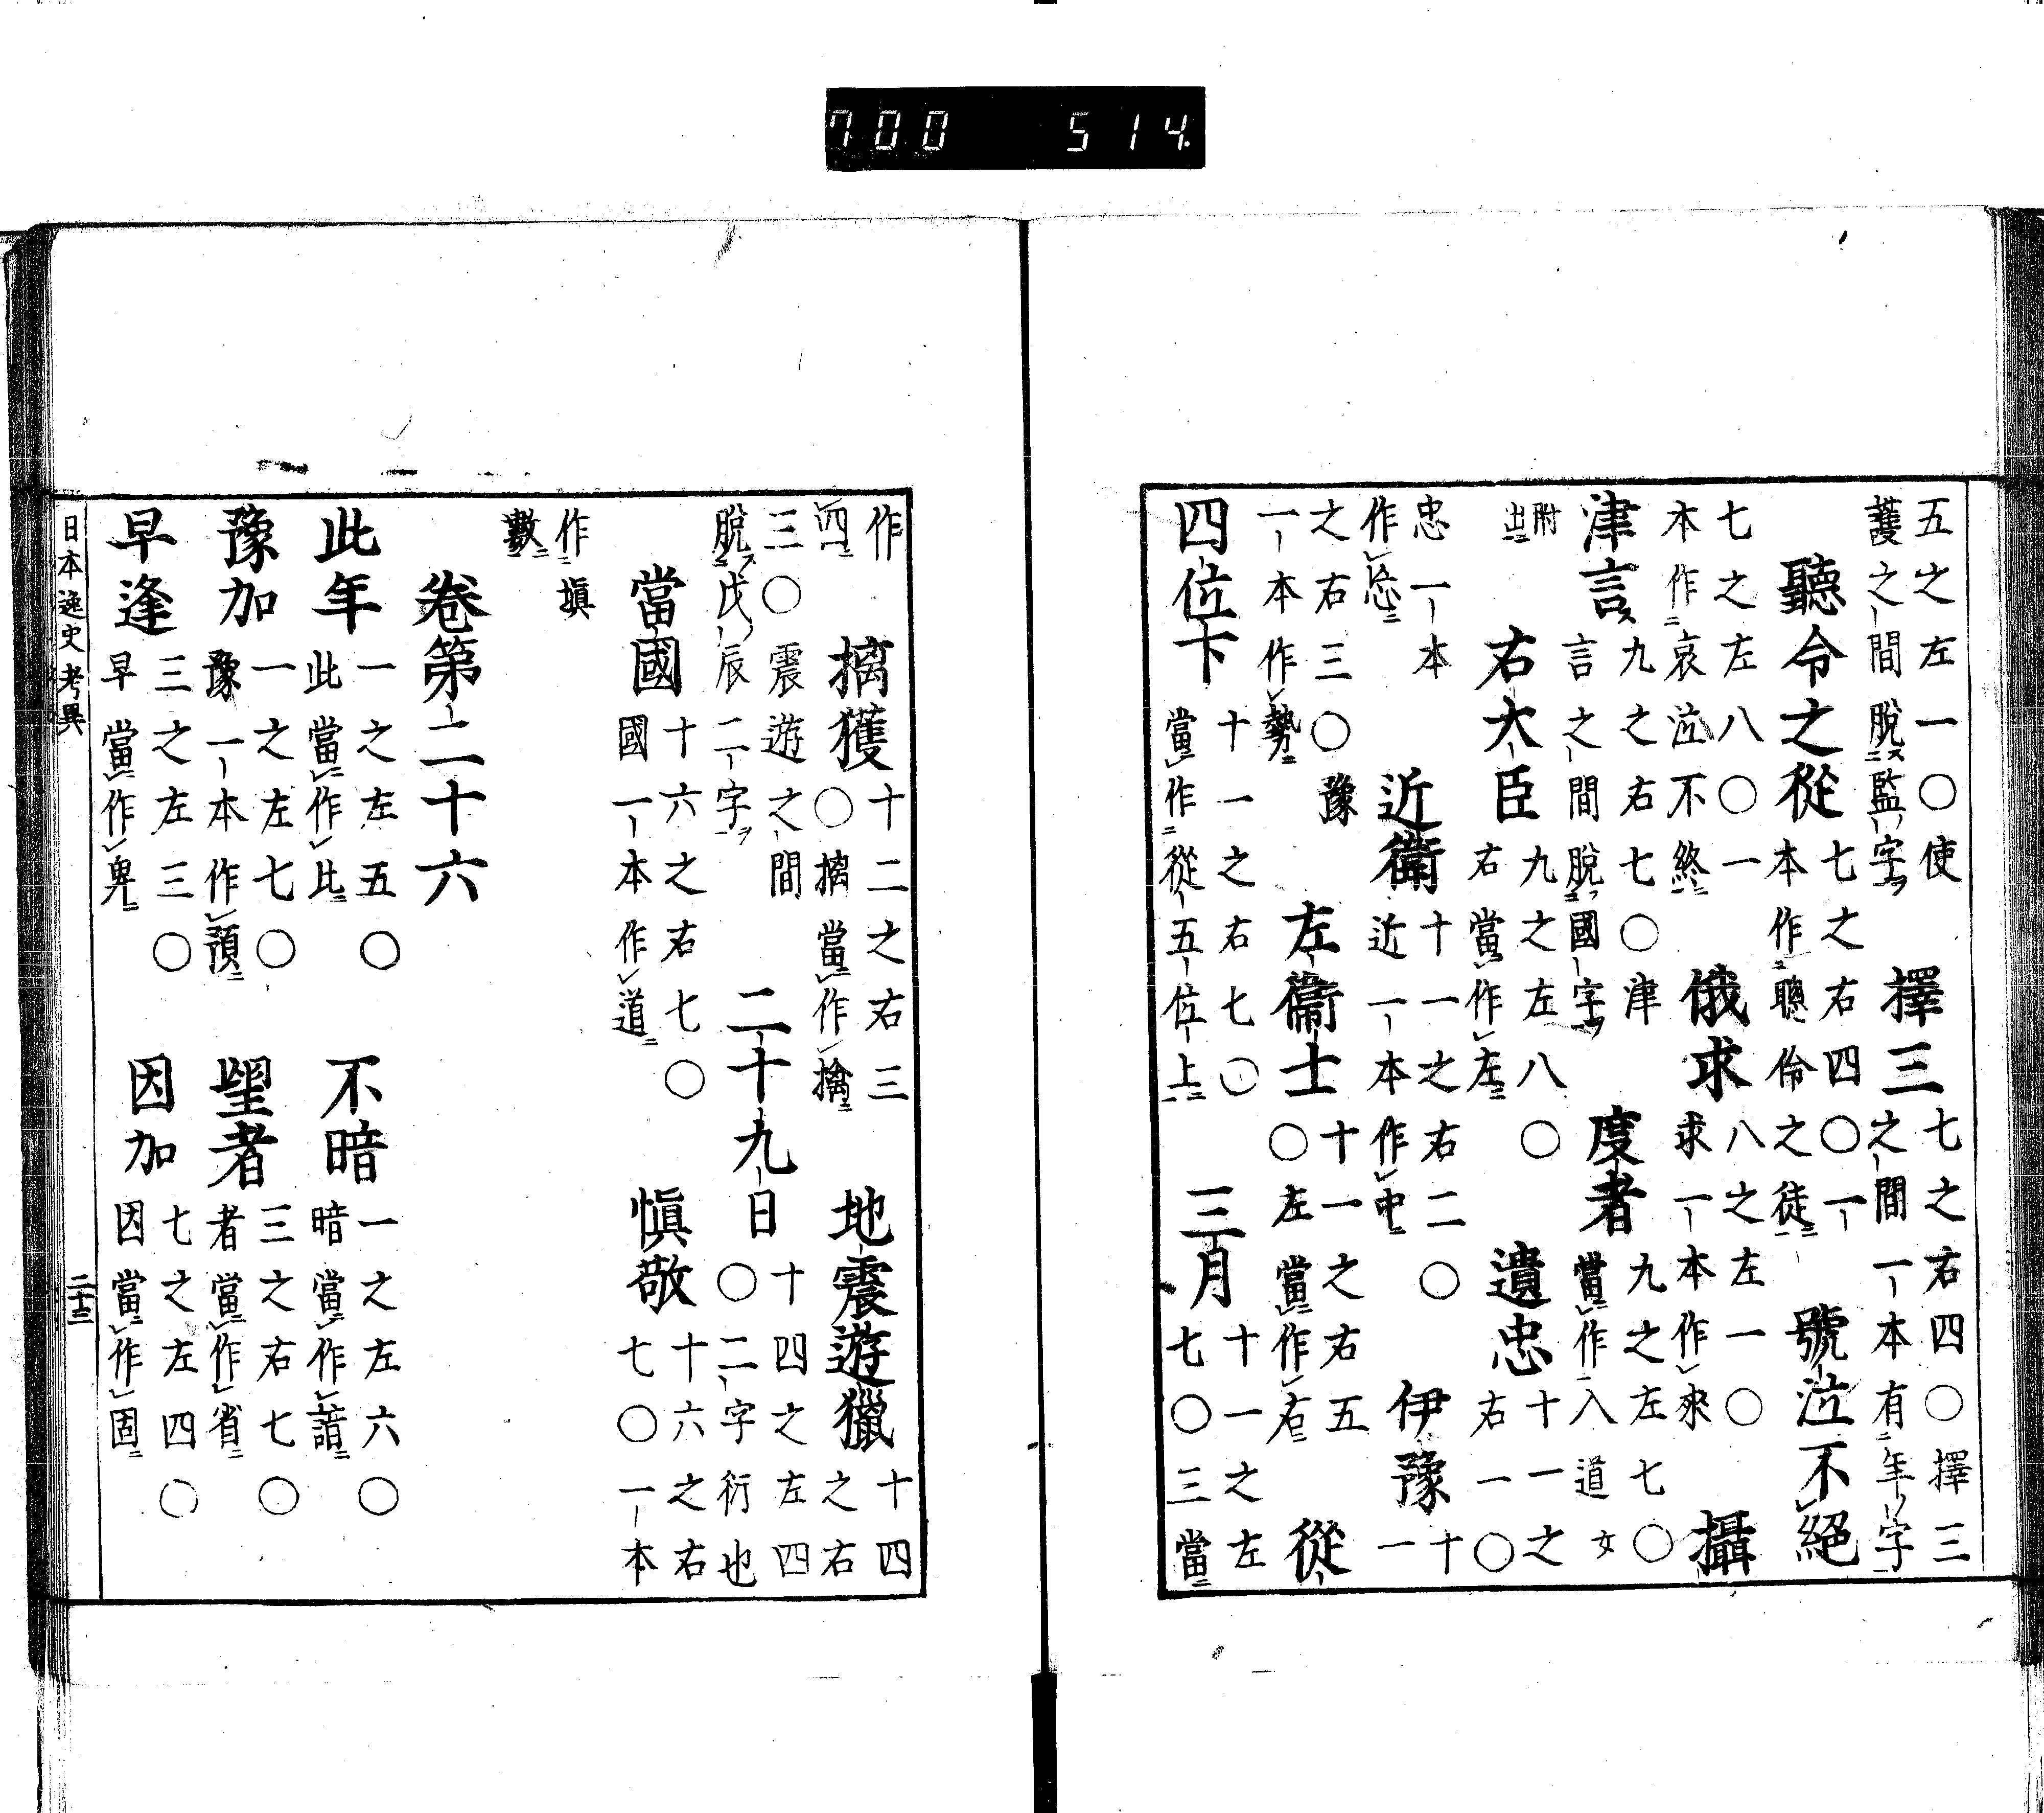 700 514.
五之左一〇使護之間脱監字 擇三 七之右四〇擇三之間一本有年字
聽令之從 七之右四〇一本作聰伶之徒 號泣不絕
七之左八〇一本作哀泣不終 俄求 八之左一〇求一本作來 攝
津言 九之右七〇津言之間脱國字 度者 九之左七〇當作入道女
附出 右大臣 九之左八〇右當作左 遺忠 十一之右一〇
忠一本作 近衞 十一之右二〇近一本作中 伊豫 十一
之右三〇豫一本作勢 左衞士 十一之右五〇左當作右 從
四位下 十一之右七〇當作從五位上 三月 十一之左七〇三當
作四 摛獲 十二之右三〇摛當作擒 地震遊獵 十四之右
三〇震遊之間脱戊辰二字 二十九日 十四之左四〇二字衍也
當國 十六之右七〇國一本作道 愼敬 十六之右七〇一本
作塡數
卷第二十六
此年 一之左五〇此當作比 不暗 一之左六〇暗當作諳
豫加 一之左七〇豫一本作預 望者 三之右七〇者當作省
早逢 三之左三〇早當作卑 因加 七之左四〇因當作固
日本逸史考異 二十三